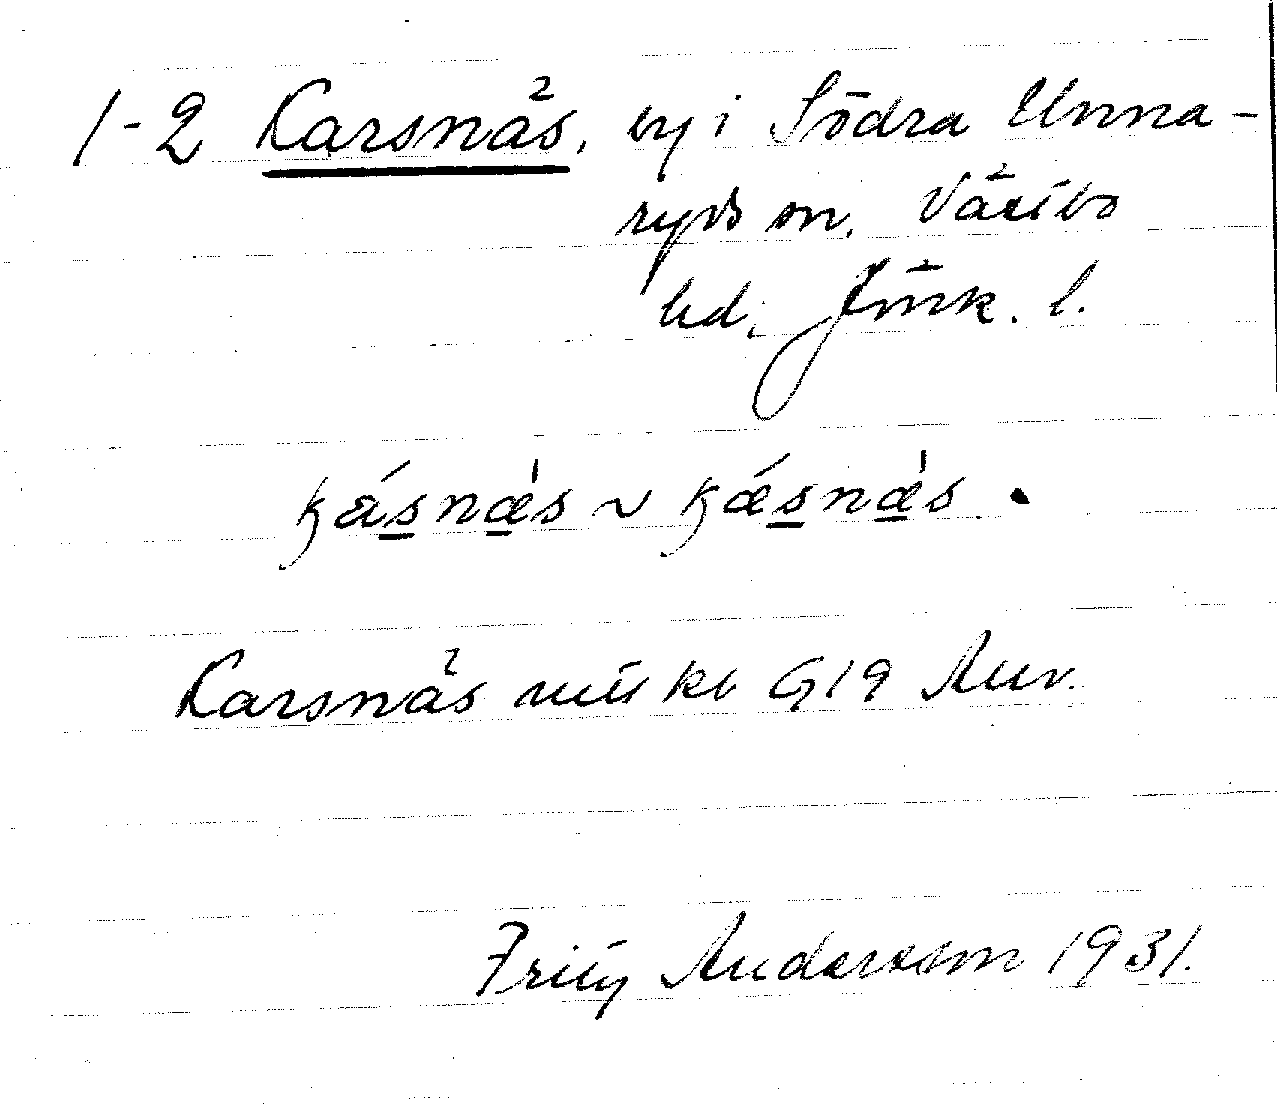 1-2 Karsnäs, by i Södra Unna-
ryds sn, Västbo
hd, Jönk. l.
kásnæ̀s ~ kǽsnæ̀s.
Karsnäs ekbl G19 Auv.
Fritz Andersson 1931.